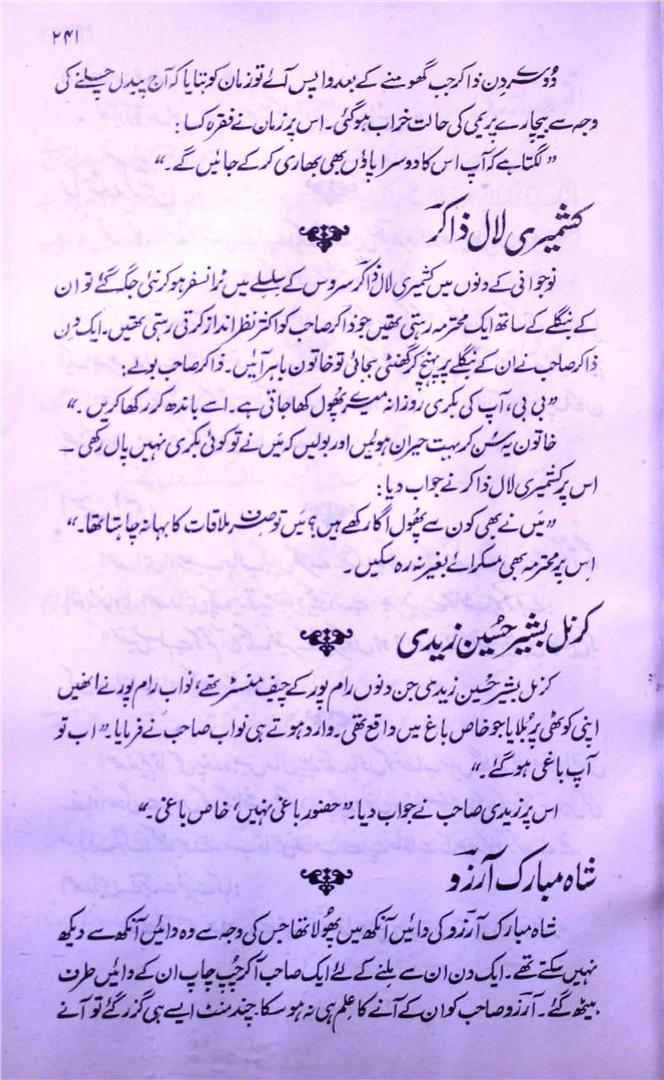 ۲۴۱
دُوسرے دِن ذاکر جب گھومنے کے بعد واپس آئے تو زمان کو بتایا کہ آج پیدل چلنے کی
وجہ سے بیچارے پریمی کی حالت خراب ہو گئی۔ اس پر زمان نے فقرہ کسا:
”لگتا ہے کہ آپ اس کا دوسرا پاؤں بھی بھاری کر کے جائیں گے۔“
کشمیری لال ذاکر
نوجوانی کے دنوں میں کشمیری لال ذاکر سروس کے سلسلے میں ٹرانسفر ہو کر نئی جگہ گئے تو ان
کے بنگلے کے ساتھ ایک محترمہ رہتی تھیں جو ذاکر صاحب کو اکثر نظر انداز کرتی رہتی تھیں۔ ایک دِن
ذاکر صاحب نے ان کے بنگلے پر پہنچ کر گھنٹی بجائی تو خاتون باہر آئیں۔ ذاکر صاحب بولے:
”بی بی، آپ کی بکری روزانہ میرے پھول کھا جاتی ہے۔ اسے باندھ کر رکھا کریں۔“
خاتون یہ سُن کر بہت حیران ہوئیں اور بولیں کہ میں نے تو کوئی بکری نہیں پال رکھی ۔
اس پر کشمیری لال ذاکر نے جواب دیا:
”میں نے بھی کون سے پھُول اگا رکھے ہیں؟ میں تو صرف ملاقات کا بہانہ چاہتا تھا۔“
اِس پر محترمہ بھی مسکرائے بغیر نہ رہ سکیں۔
کرنل بشیر حُسین زیدی
کرنل بشیر حُسین زیدی جن دنوں رام پور کے چیف منسٹر تھے، نواب رام پور نے انھیں
اپنی کوٹھی پر بُلایا جو خاص باغ میں واقع تھی۔ وارد ہوتے ہی نواب صاحب نے فرمایا۔ ”اب تو
آپ باغی ہو گئے۔“
اس پر زیدی صاحب نے جواب دیا۔ ”حضور باغی نہیں، خاص باغی۔“
شاہ مبارک آرزو
شاہ مبارک آرزو کی دائیں آنکھ میں پھُولا تھا جس کی وجہ سے وہ دائیں آنکھ سے دیکھ
نہیں سکتے تھے۔ ایک دن ان سے ملنے کے لئے ایک صاحب آکر چُپ چاپ ان کے دائیں طرف
بیٹھ گئے۔ آرزو صاحب کو ان کے آنے کا عِلم ہی نہ ہو سکا۔ چند منٹ ایسے ہی گزر گئے تو آنے